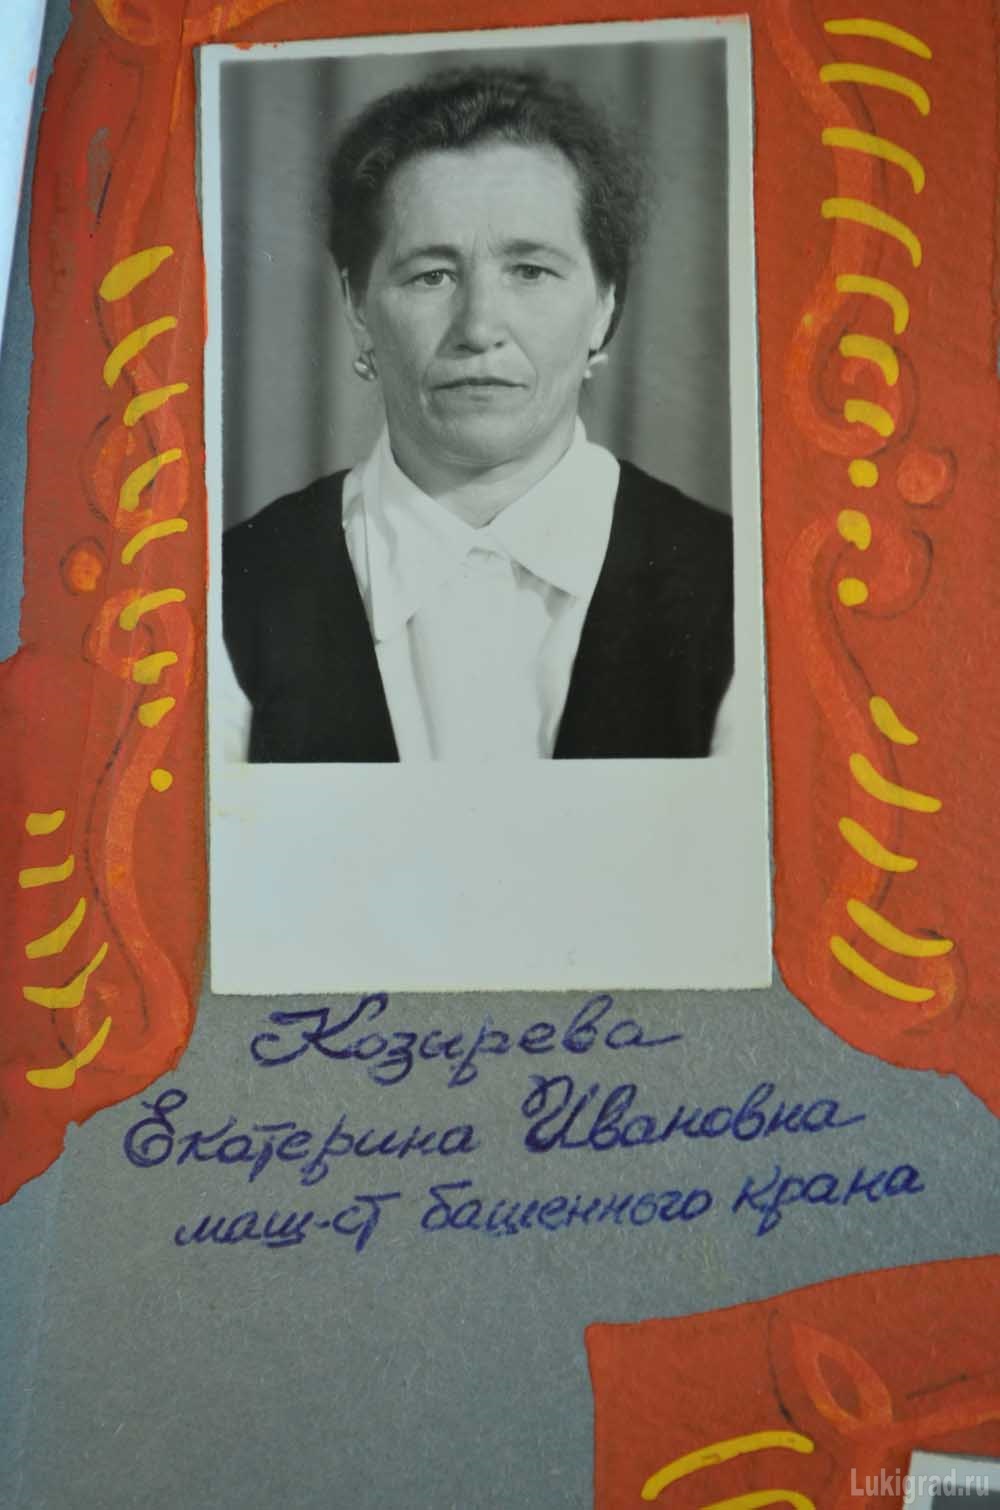 Козырева
Екатерина Ивановна
маш-ст башенного крана
Lukigrad.ru